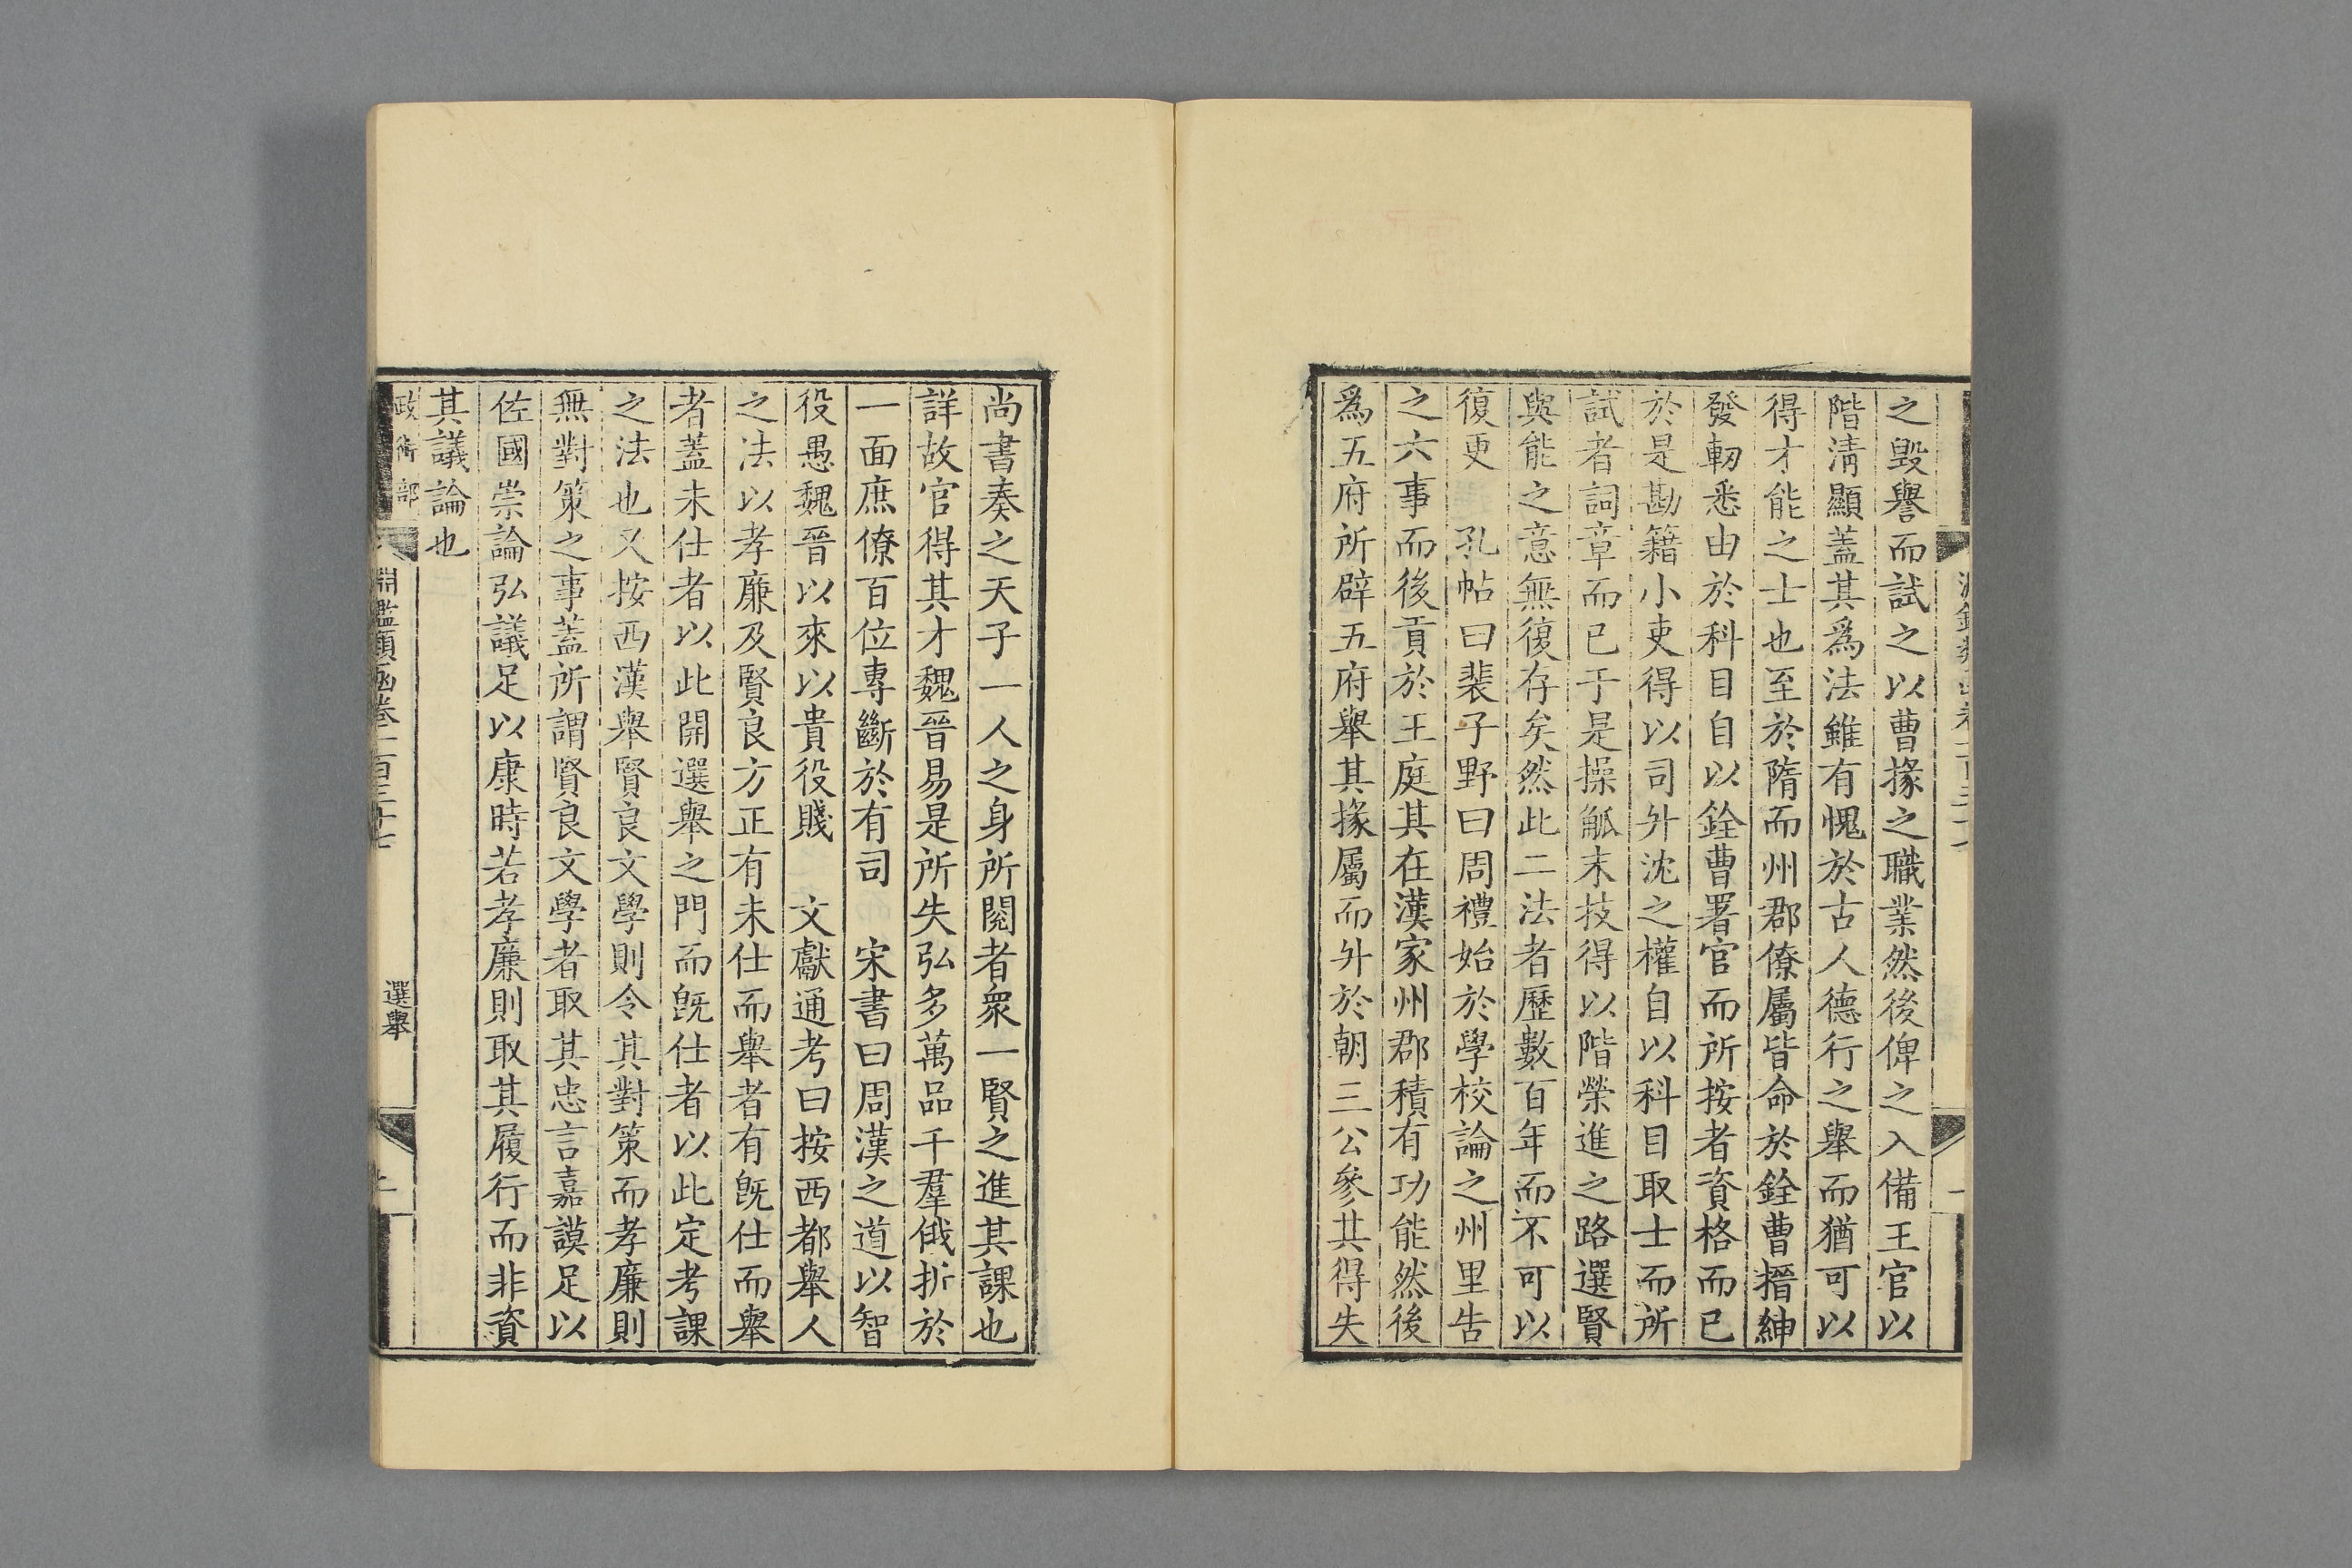 之毀譽而試之以曹掾之職業然後俾之入備王官以
階淸顯蓋其爲法雖有愧於古人德行之舉而猶可以
得才能之士也至於隋而州郡僚屬皆命於銓曹搢紳
發軔悉由於科目自以銓曹署官而所按者資格而已
於是勘籍小吏得以司升沈之權自以科目取士而所
試者詞章而已于是操觚末技得以階榮進之路選賢
與能之意無復存矣然此二法者歷數百年而不可以
復更　孔帖曰裴子野曰周禮始於學校論之州里告
之六事而後貢於王庭其在漢家州郡積有功能然後
爲五府所辟五府舉其掾屬而升於朝三公參其得失
尚書奏之天子一人之身所閱者衆一賢之進其課也
詳故官得其才魏晉易是所失弘多萬品千羣俄折於
一面庶僚百位專斷於有司　宋書曰周漢之道以智
役愚魏晉以來以貴役賤　文獻通考曰按西都舉人
之法以孝廉及賢良方正有未仕而舉者有旣仕而舉
者蓋未仕者以此開選舉之門而旣仕者以此定考課
之法也又按西漢舉賢良文學則令其對策而孝廉則
無對策之事蓋所謂賢良文學者取其忠言嘉謨足以
佐國崇論弘議足以康時若孝廉則取其履行而非資
其議論也
政術部　淵鑑類函卷一百三十七　選舉